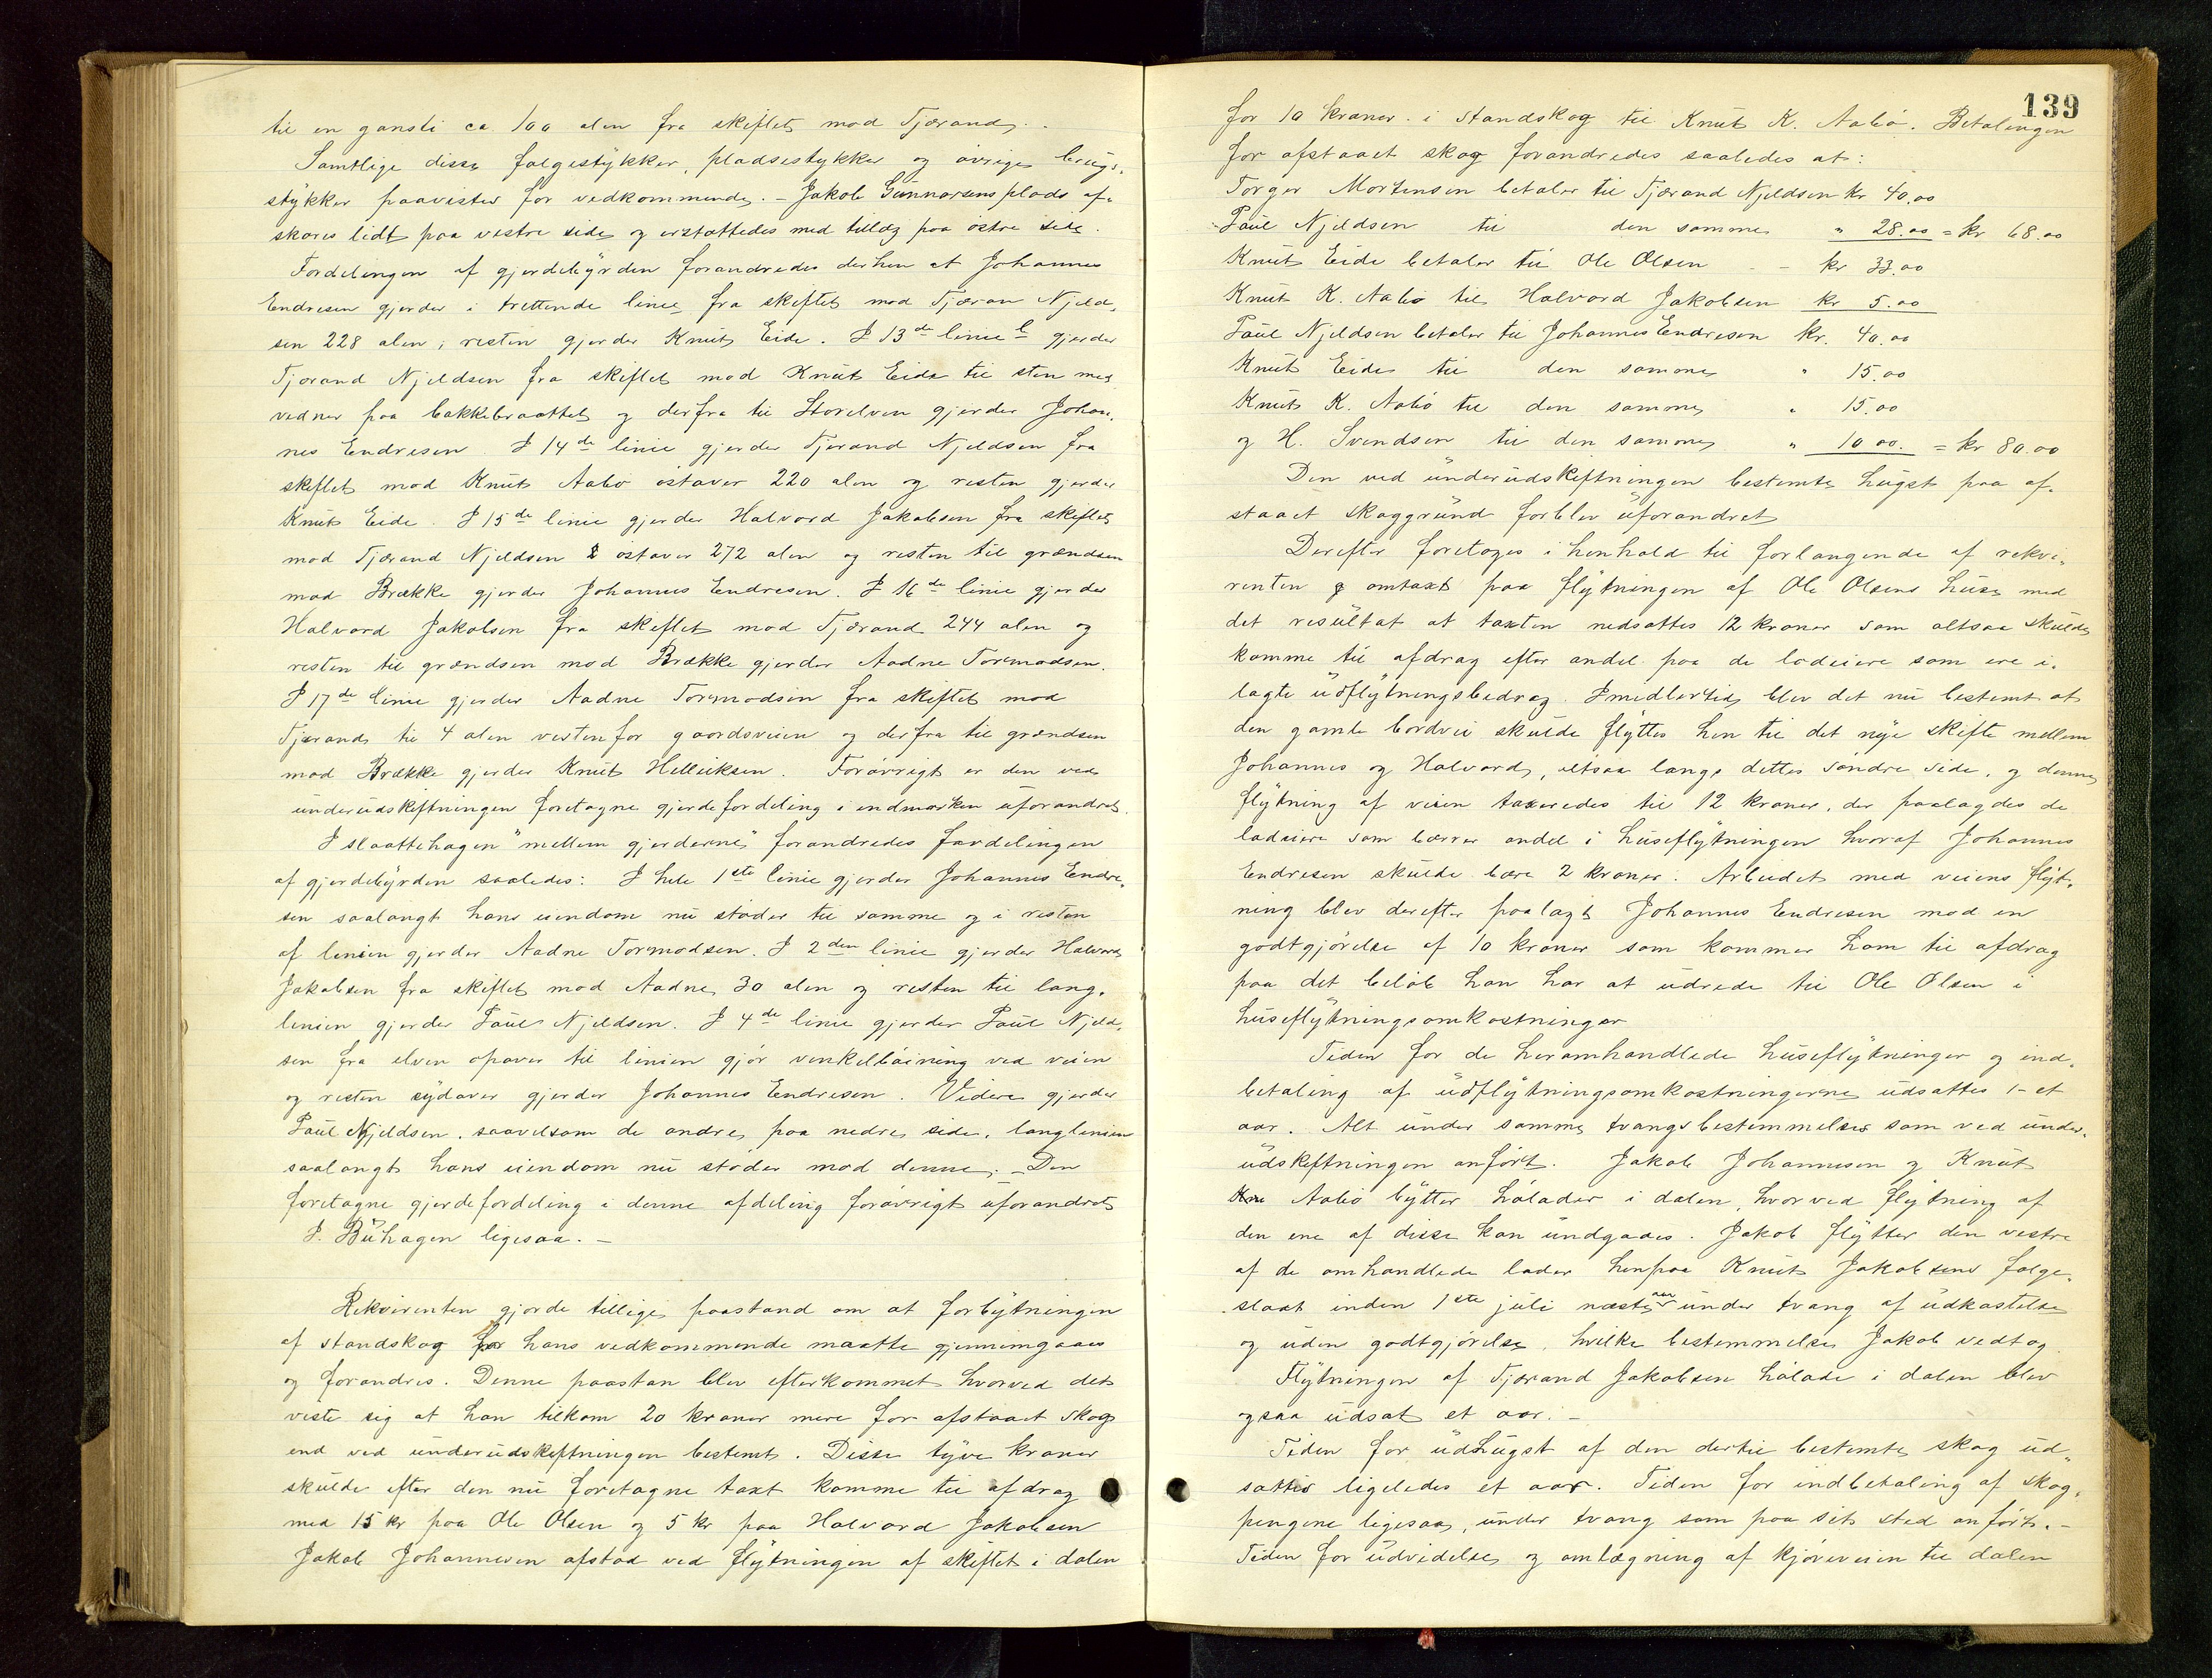 til en gansti ca 100 alen fra skiftet mod Tjærand.
Samtlige disse følgestykker, pladsestykker og øvrige brugs-
stykker paavistes for vedkommende. – Jakob Gunnarsens plads af-
skores lidt paa vestre side og erstattedes med tillæg paa østre side.
Fordelingen af gjerdebyrden forandredes derhen at Johannes
Endresen gjerder i trettende linie fra skiftet mod Tjæran Njeld-
sen 228 alen, resten gjerder Knut Eide. I 13de linie b gjerder
Tjørand Njeldsen fra skiftet mod Knut Eide til sten med
vedner paa bakkebraattet og derfra til Storelven gjerder Johan-
nes Endresen I 14de linie gjerder Tjerand Njeldsen fra
skiftet mod Knut Aabø østover 220 alen og resten gjerder
Knut Eide. I 15de linie gjerder Halvord Jakobsen fra skiftet
mod Tjærand Njeldsen østover 272 alen og resten til grændsen
mod Brække gjerder Johannes Endresen. I 16de linie gjerder
Halvord Jakobsen fra skiftet mod Tjærand 244 alen og
resten til grændsen mod Brække gjerder Aadne Tormodsen.
I 17de linie gjerder Aadne Tormodsen fra skiftet mod
Tjærand til 4 alen vestenfor gaardsveien og derfra til grændsen
mod Brække gjerder Knut Helliksen. Forøvrigt er den ved
underudskiftningen foretagne gjerdefordeling i indmarken uforandret.
I slaattehagen "mellem gjerderne" forandredes fordelingen
af gjerdebyrden saaledes: I hele 1ste linie gjerder Johannes Endre-
sen saalangt hans eiendom nu støder til samme og i resten
af linien gjerder Aadne Tormodsen. I 2den linie gjerder Halvord
Jakobsen fra skiftet mod Aadne 30 alen og resten til lang-
linien gjerder Paul Njeldsen. I 4de linie gjerder Paul Njeld-
sen fra elven opover til linien gjør venkelbøining ved veien
og resten sydover gjerder Johannes Endresen. Videre gjerder
Paul Njeldsen, saavelsom de andre, paa nedre side, langlinien
saalangt hans eiendom nu støder mod denne. – Den
foretagne gjerdefordeling i denne afdeling forøvrigt uforandret
I Buhagen ligesaa. –
Rekvirenten gjorde tillige paastand om at forbytningen
af standskog for hans vedkommende maatte gjennemgaaes
og forandres. Denne paastan blev efterkommet hvorved det
viste sig at han tilkom 20 kroner mere for afstaaet skog
end ved underudskiftningen bestemt. Disse tyve kroner
skulde efter den nu foretagne taxt komme til afdrag
med 15 kr paa Ole Olsen og 5 kr paa Halvord Jakobsen
Jakob Johannesen afstod ved flytningen af skiftet i dalen
139
for 10 kroner i standskog til Knut K. Aabø. Betalingen
for afstaaet skog forandredes saaledes at:
Torger Mortensen betaler til Tjærand Njeldsen kr 40.00
Paul Njeldsen til den samme " 28.00 = kr 68.00
Knut Eide betaler til Ole Olsen - - kr 33.00
Knut K. Aabø til Halvord Jakobsen kr 5.00
Paul Njeldsen betaler til Johannes Endresen kr. 40.00
Knut Eide til den samme " 15.00
Knut K. Aabø til den samme " 15.00
og H. Svendsen til den samme " 10 00. = kr 80.00
Den ved underudskiftningen bestemte hugst paa af-
staaet skoggrund forblev uforandret
Derefter foretoges i henhold til forlangende af rekvi-
renten omtaxt paa flytningen af Ole Olsens huse med
det resultat at taxten nedsattes 12 kroner som altsaa skulde
komme til afdrag efter andel paa de lodeiere som ere i-
lagte udflytningsbedrag. Imidlertid blev det nu bestemt at
den gamle bordvei skulde flyttes hen til det nye skifte mellem
Johannes og Halvord, altsaa langs dettes søndre side, og denne
flytning af veien taxeredes til 12 kroner, der paalagdes de
lodeiere som bærer andel i huseflytningen hvoraf Johannes
Endresen skulde bære 2 kroner. Arbeidet med veiens flyt-
ning blev derefter paalagt Johannes Endresen mod en
godtgjørelse af 10 kroner som kommer ham til afdrag
paa det beløb han har at udrede til Ole Olsen i
huseflytningsomkostninger
Tiden for de heromhandlede huseflytninger og ind-
betaling af udflytningsomkostningerne udsattes 1- et
aar. Alt under samme tvangsbestemmelser som ved under-
udskiftningen anført. Jakob Johannesen og Knut
Aabø bytter hølader i dalen, hvorved flytning af
den ene af disse kan undgaaes. Jakob flytter den vestre
af de omhandlede lader henpaa Knut Jakobsens følge-
slaat inden 1ste juli næste aar under tvang af udkastelse
og uden godtgjørelse, hvilke bestemmelse Jakob vedtog
Flytningen af Tjærand Jakobsen hølade i dalen blev
ogsaa udsat et aar. –
Tiden for udhugst af den dertil bestemte skog ud-
sattes ligeledes et aar. Tiden for indbetaling af skog-
pengene ligesaa, under tvang som paa sit sted anført. –
Tiden for udvidelse og omlægning af kjøreveien til dalen